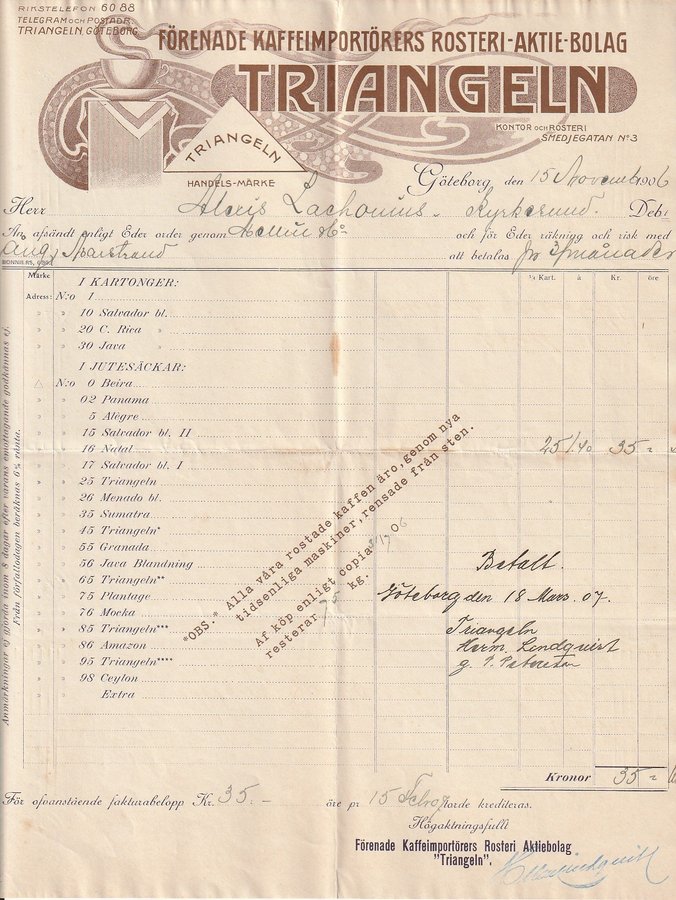 RIKSTELEFON 6088
TELEGRAM OCH POSTADR.
TRIANGELN, GÖTEBORG.
FÖRENADE KAFFEIMPORTÖRERS ROSTERI-AKTIE-BOLAG
TRIANGELN
KONTOR OCH ROSTERI
SMEDJEGATAN No 3
TRIANGELN
HANDELS-MÄRKE
Göteborg den 15 November 1906
Herr Alexis Zachonius. Kyrkesund. Debet
An afsändt enligt Eder order genom & Co och för Eder räkning och risk med
Ång. Marstrand att betalas pr 3 månader
BONNIERS, GBG.
Märke ½ Kart. à Kr. öre
Adress:
I KARTONGER:
N:o 1
" " 10 Salvador bl.
" " 20 C. Rica "
" " 30 Java "
I JUTESÄCKAR:
△ N:o 0 Beira
" " 02 Panama
" " 5 Alègre
" " 15 Salvador bl. II
" " 16 Natal 25 1/40 35 =
" " 17 Salvador bl. I
" " 25 Triangeln
" " 26 Menado bl.
" " 35 Sumatra
" " 45 Triangeln*
" " 55 Granada
" " 56 Java Blandning
" " 65 Triangeln**
" " 75 Plantage
" " 76 Mocka
" " 85 Triangeln***
" " 86 Amazon
" " 95 Triangeln****
" " 98 Ceylon
" " Extra
"OBS." Alla våra rostade kaffen äro, genom nya
tidsenliga maskiner, rensade från sten.
Af köp enligt copia 06
resterar 75 kg.
Betalt.
Göteborg den 18 Mars. 07.
Triangeln
Herm. Lindquist
g. P. Peterson
Anmärkningar ej gjorda inom 8 dagar efter varans emottagande godkännas ej.
Från förfallodagen beräknas 6 % ränta.
Kronor 35 =
För ofvanstående fakturabelopp Kr. 35.- öre pr 15 Febr 07 torde krediteras.
Högaktningsfullt
Förenade Kaffeimportörers Rosteri Aktiebolag
"Triangeln".